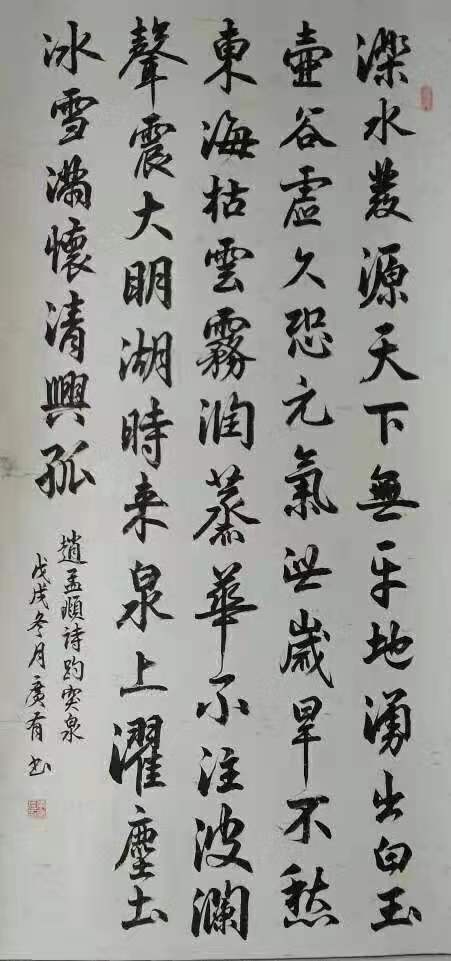 濼水發源天下無平地湧出白玉
壺谷虛久恐元氣泄歲旱不愁
東海枯雲霧潤蒸華不注波瀾
聲震大明湖時来泉上濯塵土
冰雪滿懷清興孤
趙孟頫詩趵突泉
戊戌冬月廣有书